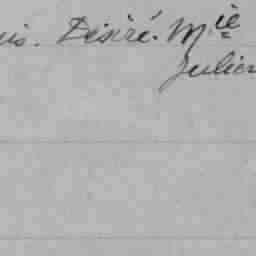 is. Désiré. M.ie
Julien